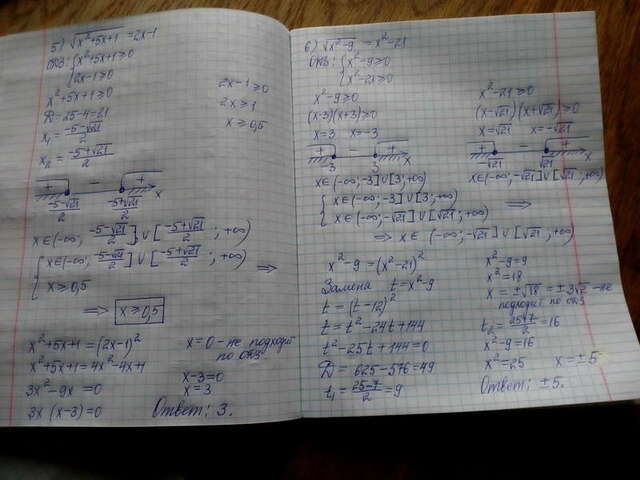 5) √(x²+5x+1) = 2x-1
ОДЗ: {x²+5x+1≥0
{2x-1≥0
x²+5x+1≥0
D=25-4=21
x₁ = (-5-√21)/2
x₂ = (-5+√21)/2
2x-1≥0
2x≥1
x≥0,5
+ - + x
(-5-√21)/2 (-5+√21)/2
x∈(-∞; (-5-√21)/2] ∪ [(-5+√21)/2; +∞)
{x∈(-∞; (-5-√21)/2] ∪ [(-5+√21)/2; +∞)
{x≥0,5
⟹
⟹ x≥0,5
x²+5x+1=(2x-1)²
x²+5x+1=4x²-4x+1
3x²-9x=0
3x(x-3)=0
x=0-не подходит
по ОДЗ
x-3=0
x=3
Ответ: 3.
6) √(x²-9) = x²-21
ОДЗ: {x²-9≥0
{x²-21≥0
x²-9≥0
(x-3)(x+3)≥0
x=3 x=-3
+ - + x
3 3
x²-21≥0
(x-√21)(x+√21)≥0
x=√21 x=-√21
+ - + x
-√21 √21
x∈(-∞;-3]∪[3;+∞)
x∈(-∞;-√21]∪[√21;+∞)
{x∈(-∞;-3]∪[3;+∞)
{x∈(-∞;-√21]∪[√21;+∞)
⟹
⟹ x∈(-∞;-√21]∪[√21;+∞)
x²-9=(x²-21)²
Замена t=x²-9
t=(t-12)²
t=t²-24t+144
t²-25t+144=0
D=625-576=49
t₁=(25-7)/2=9
x²-9=9
x²=18
x=±√18=±3√2-не
подходит по ОДЗ
t₂=(25+7)/2=16
x²-9=16
x²=25 x=±5
Ответ: ±5.